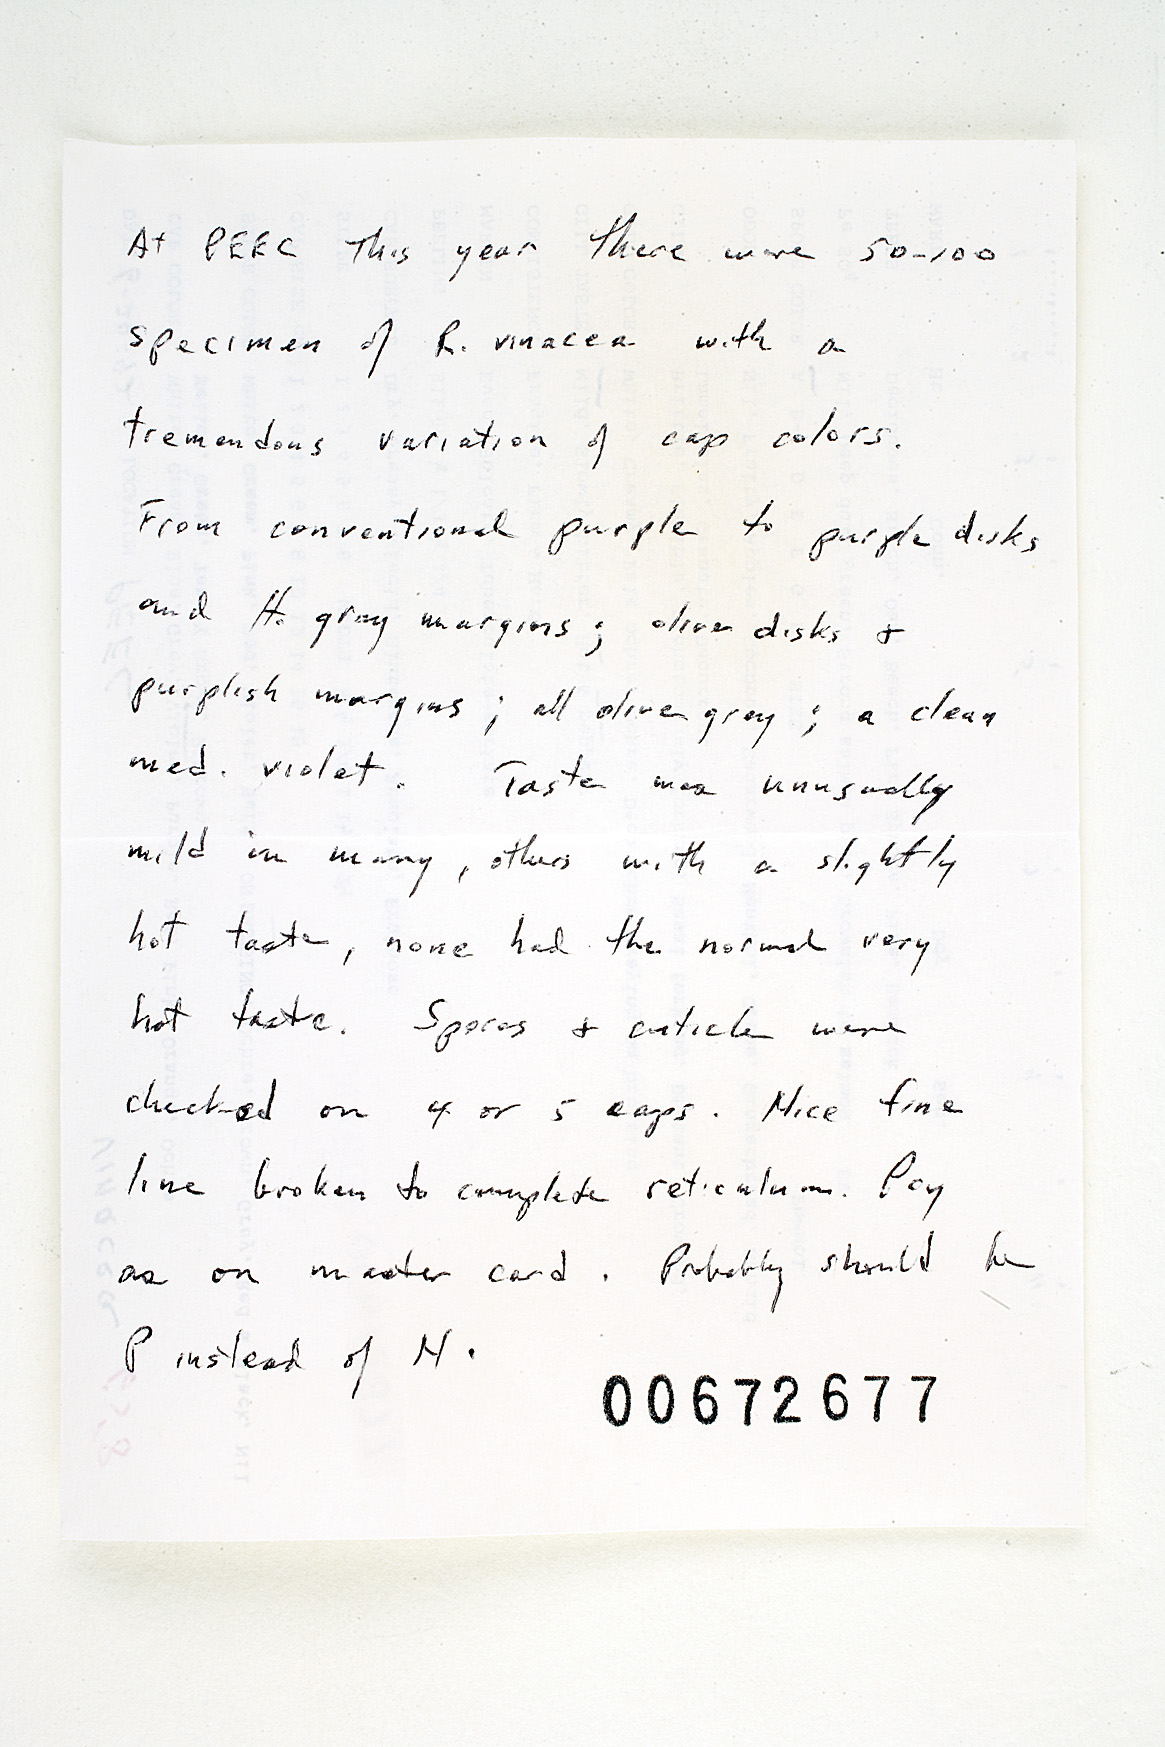 At PEEC this year there were 50-100
specimen of R. vinacea with a
tremendous variation of cap colors.
From conventional purple to purple disks
and lt. gray margins; olive disks &
purplish margins; all olive gray; a clean
med. violet. Taste was unusually
mild in many, others with a slightly
hot taste, none had the normal very
hot taste. Spores & cuticle were
checked on 4 or 5 caps. Nice fine
line broken to complete reticulum. Pcy
as on master card. Probably should be
P instead of M.
00672677